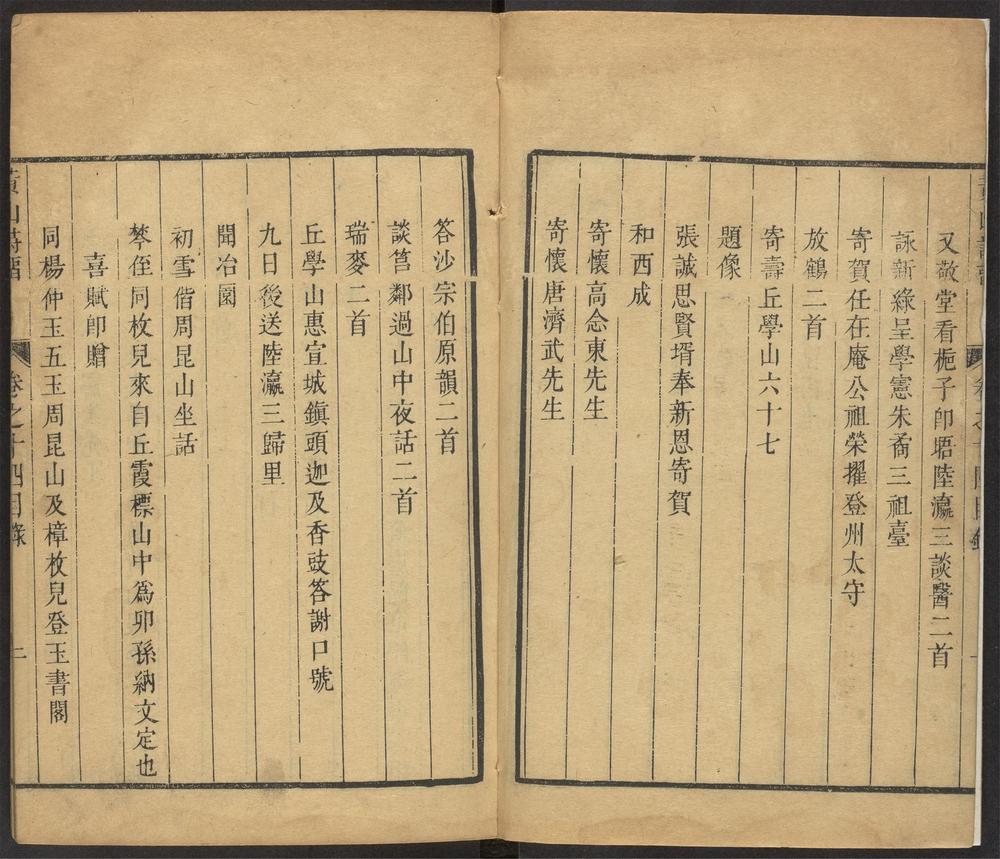 又敬堂看梔子即晤陸瀛三談醫二首
詠新綠呈學憲朱矞三祖臺
寄賀任在庵公祖榮擢登州太守
放鶴二首
寄壽丘學山六十七
題像
張誠思賢壻奉新恩寄賀
和西成
寄懷高念東先生
寄懷唐濟武先生
答沙宗伯原韻二首
談筥鄰過山中夜話二首
瑞麥二首
丘學山惠宣城鎮頭迦及香豉答謝口號
九日後送陸瀛三歸里
聞冶園
初雪偕周昆山坐話
棽侄同枚兒來自丘霞標山中爲卯孫納文定也
喜賦卽贈
同楊仲玉五玉周昆山及樟枚兒登玉書閣
卷之十四目錄
二